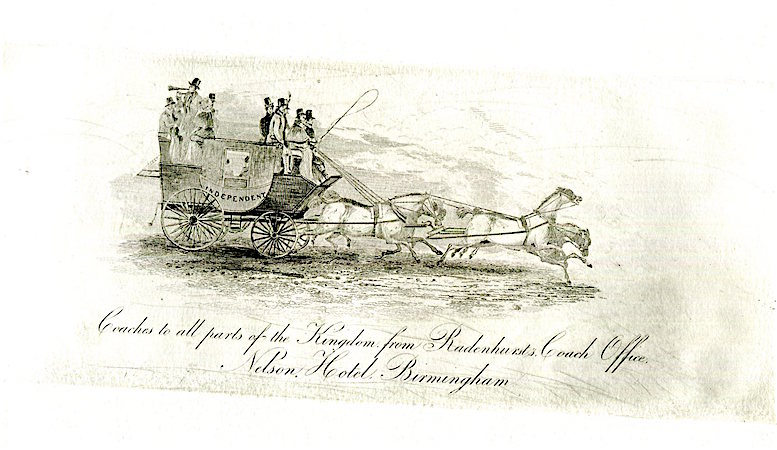 INDEPENDENT
Coaches to all parts of the Kingdom, from Radenhursts, Coach Office,
Nelson, Hotel, Birmingham